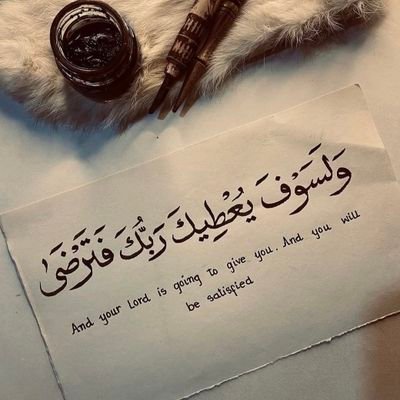 وَلَسَوْفَ يُعْطِيكَ رَبُّكَ فَتَرْضَىٰ
And your Lord is going to give you. And you will
be satisfied